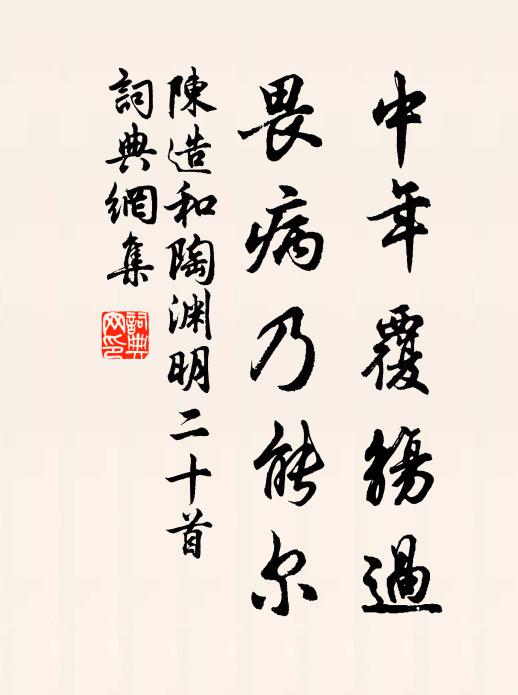 中年覆觴過
畏病乃能尔
陳造和陶淵明二十首
詞典網集
詞典網印